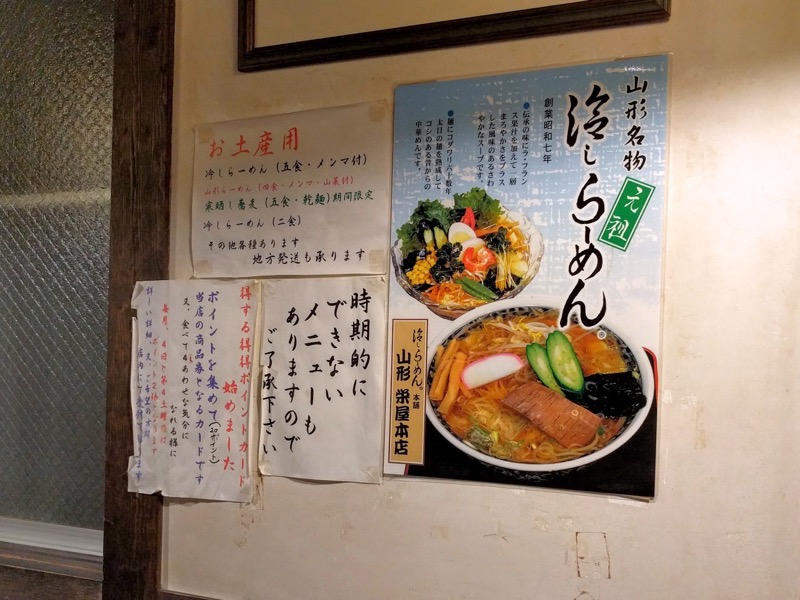 山形名物
元祖
冷しらーめん。
創業昭和七年
●伝承の味にラ・フラン
ス果汁を加えて一層
まろやかさをプラス
した風味のあるさわ
やかなスープです。
●麺にコダワリ六十数年
太目の麺を熟成して
コシのある昔からの
中華めんです。
冷しらーめん。本舗
山形 栄屋本店
お土産用
冷しらーめん(五食・メンマ付)
山形らーめん(四食・メンマ・山菜付)
寒晒し蕎麦(五食・乾麺)期間限定
冷しらーめん(二食)
その他各種あります
地方発送も承ります
時期的に
できない
メニューも
ありますので
ご了承下さい
得する得得ポイントカード
始めました
ポイントを集めて(20ポイント)
当店の商品券となるカードです
又、食べて4あわせな気分に
なれる様に
毎月、4日と第4土曜日は